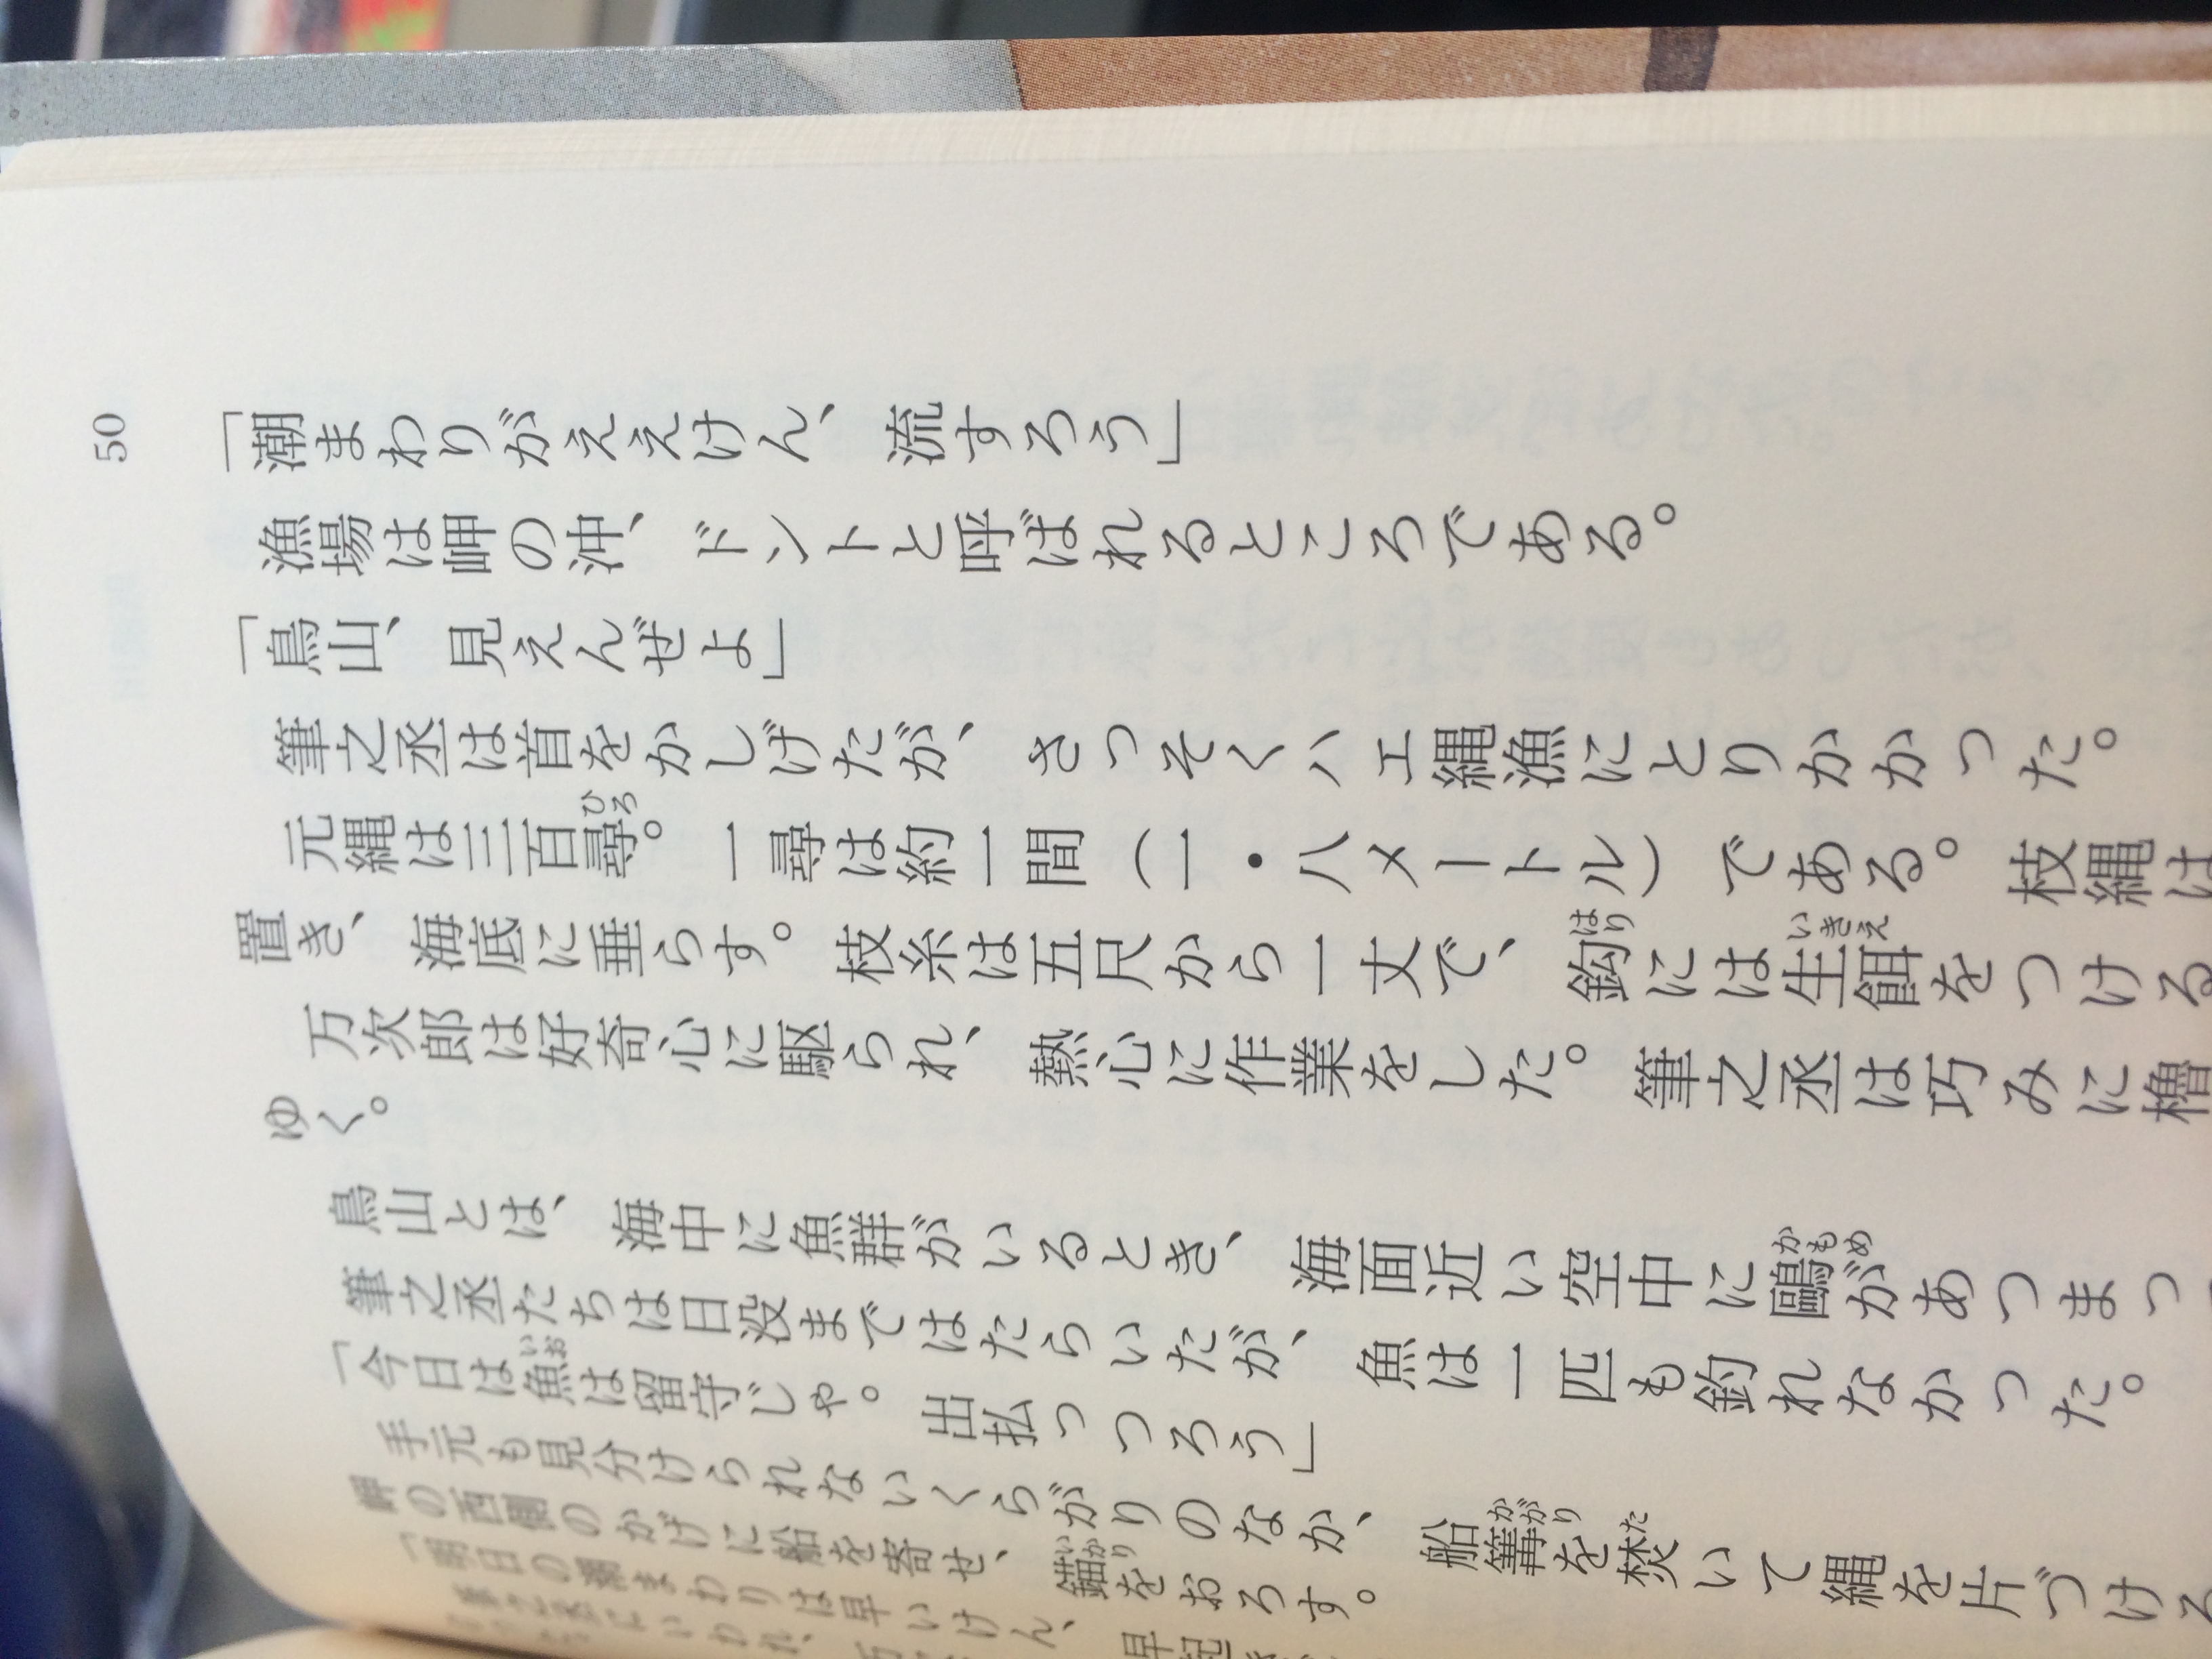 50
「潮まわりがええけん、流すろう」
漁場は岬の沖、ドントと呼ばれるところである。
「鳥山、見えんぜよ」
筆之丞は首をかしげたが、さっそくハエ縄漁にとりかかった。
元縄は三百尋。一尋は約一間(一・八メートル)である。枝縄は
置き、海底に垂らす。枝糸は五尺から一丈で、鈎には生餌をつける
万次郎は好奇心に駆られ、熱心に作業をした。筆之丞は巧みに櫓
ゆく。
鳥山とは、海中に魚群がいるとき、海面近い空中に鷗があつまっ
筆之丞たちは日没まではたらいたが、魚は一匹も釣れなかった。
「今日は魚は留守じゃ。出払っつろう」
手元も見分けられないくらがりのなか、船篝を焚いて縄を片づける
岬の西側のかげに船を寄せ、錨をおろす。
「明日の潮まわりは早いけん、早起き
筆之丞にいわれ、